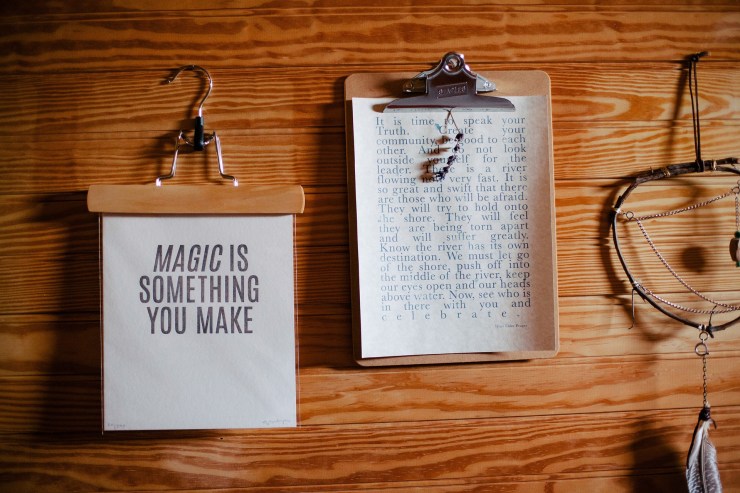 MAGIC IS
SOMETHING
YOU MAKE
It is time to speak your
Truth. Create your
community. good to each
other. And do not look
outside yourself for the
leader. is a river
flowing now very fast. It is
so great and swift that there
are those who will be afraid.
They will try to hold onto
the shore. They will feel
they are being torn apart
and will suffer greatly.
Know the river has its own
destination. We must let go
of the shore, push off into
the middle of the river, keep
our eyes open and our heads
above water. Now, see who is
in there with you and
celebrate.